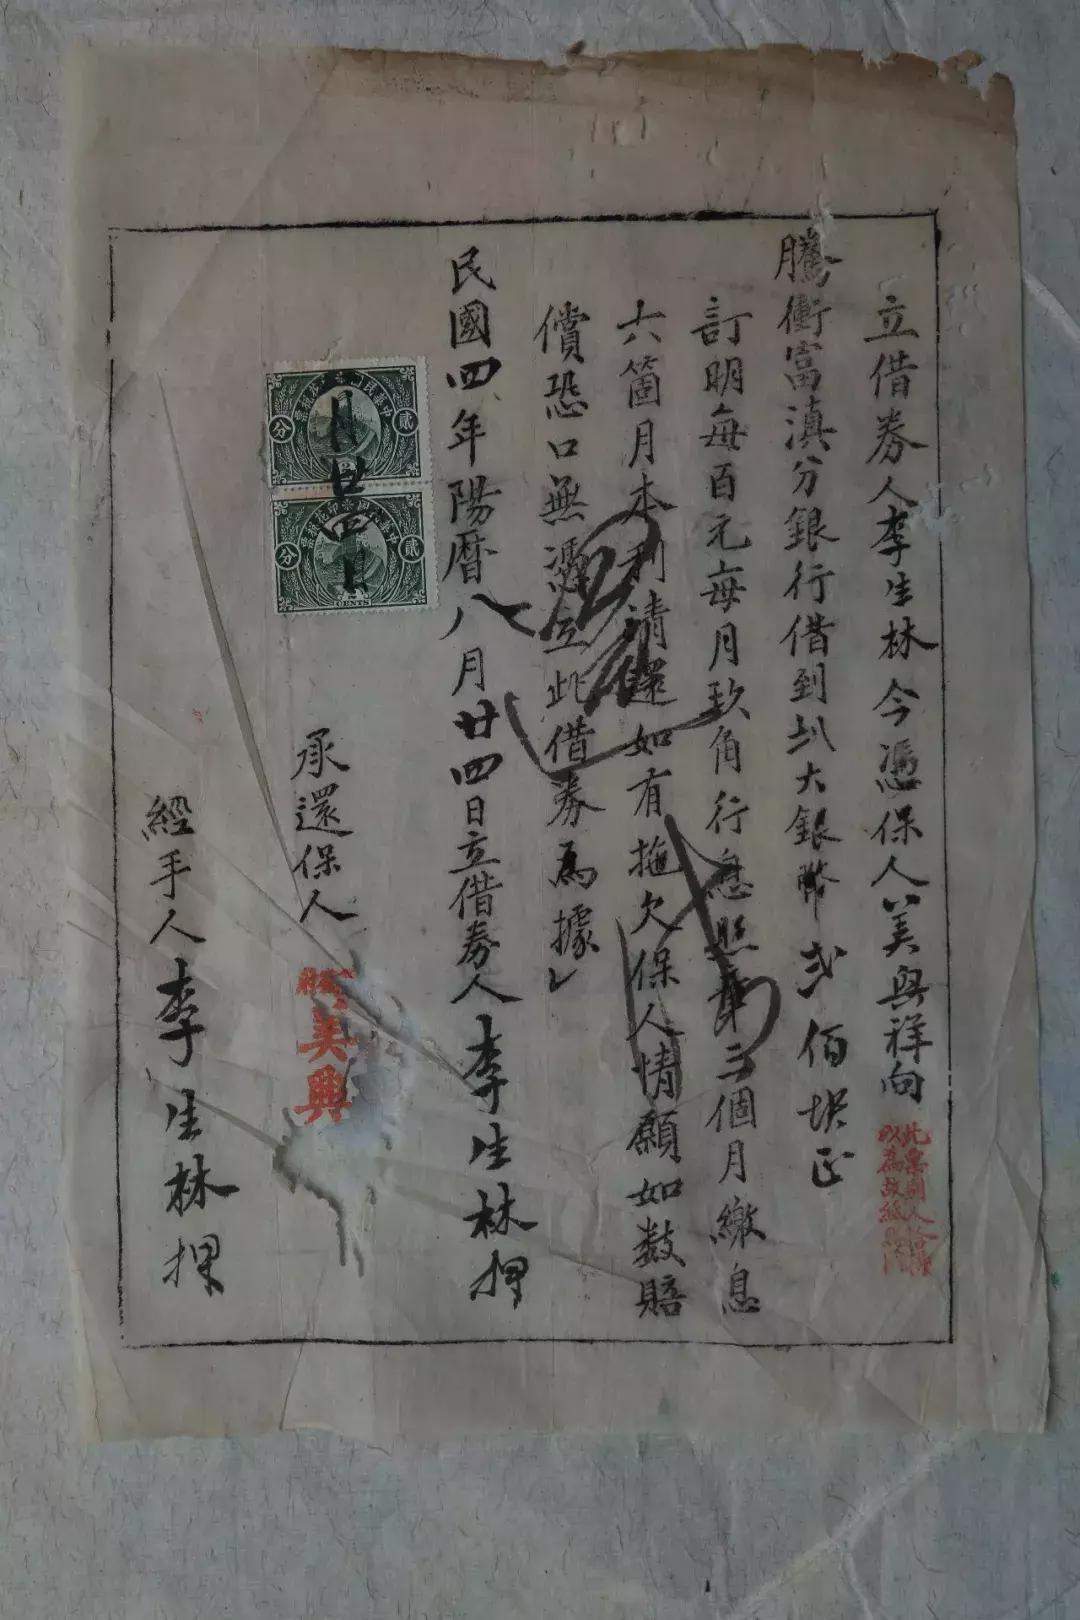 立借券人李生林今憑保人美興祥向
騰衝富滇分銀行借到大銀幣弍佰正
訂明每百元每月玖角行息照章三個月繳息
六箇月本利清還如有拖欠保人情願如數賠
償恐口無憑立此借券為據
民國四年陽曆八月廿四日立借券人李生林押
承還保人
美興
經手人李生林押
此票別人
以為故紙
月廿四日
貳
分
貳
分
CENTS